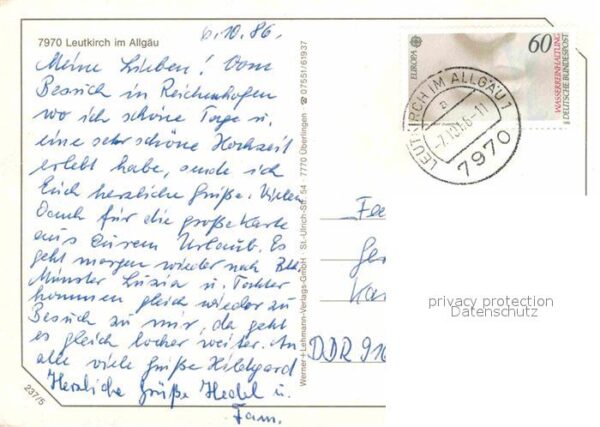 7970 Leutkirch im Allgäu
6.10.86.
Meine Lieben! Vom
Besuch in Reichenhofen
wo ich schöne Tage u.
eine sehr schöne Hochzeit
erlebt habe, sende ich
Euch herzliche Grüße. Vielen
Dank für die große Karte
aus Eurem Urlaub. Es
geht morgen wieder nach
Münster Luzia u. Tochter
kommen gleich wieder zu
Besuch zu mir, da geht
es gleich locker weiter. An
alle viele Grüße Hildgard
Herzliche Grüße Hedel u.
Fam.
237/5
Werner+Lehmann-Verlags-GmbH · St.-Ulrich-Str. 54 · 7770 Überlingen ☎ 07551/61937
EUROPA
60
WASSERREINHALTUNG
DEUTSCHE BUNDESPOST
LEUTKIRCH IM ALLGÄU 1
-7.10.86-11
7970
DDR 916
privacy protection
Datenschutz